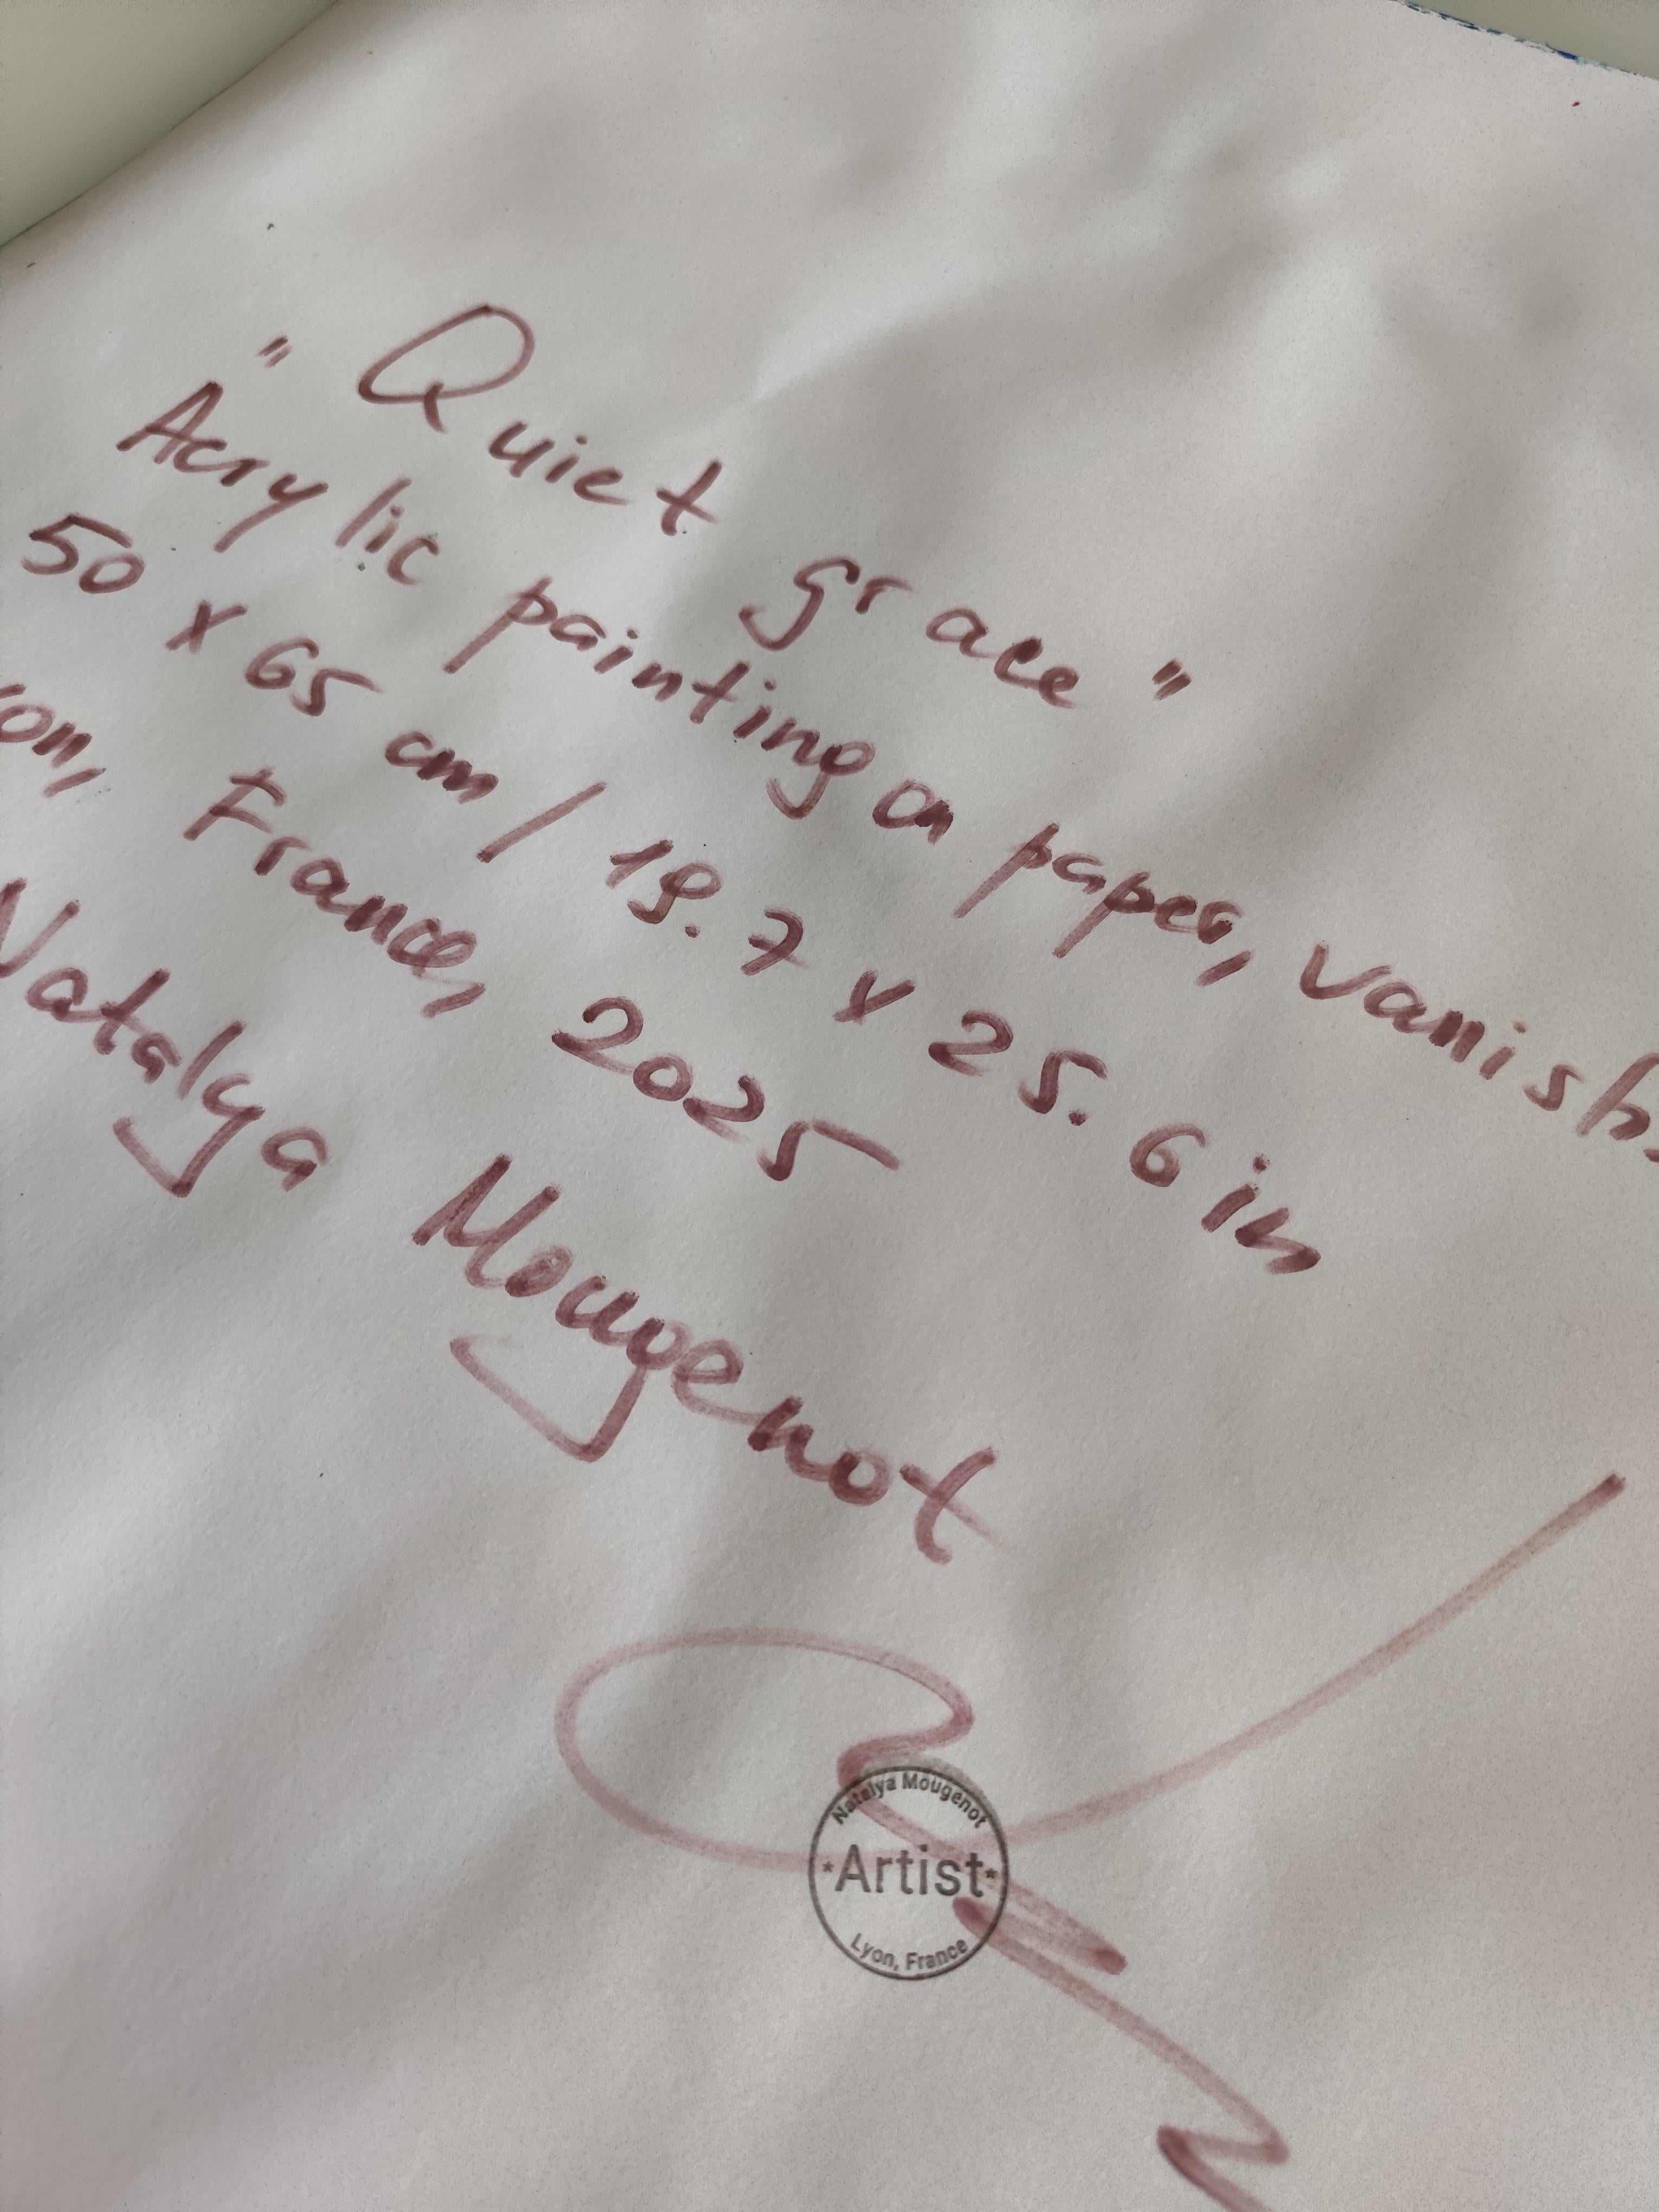 " Quiet grace "
Acrylic painting on paper, vanish,
50 x 65 cm / 19.7 x 25.6 in
yon, France, 2025
Natalya Mougenot
Natalya Mougenot
*Artist*
Lyon, France